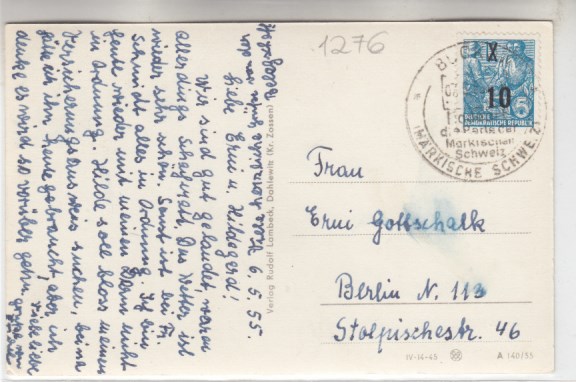 6. 5. 55.
Liebe Erni u. Hildegard!
Wir sind gut gelandet, waren
allerdings Das Wetter ist
wieder sehr schön. Sonst ist bei Fr.
Schmidt alles in Ordnung. Ich bin
heute wieder mit meinem Darm nicht
in Ordnung. Hilde soll bloss meinen
Versicherungsausweis suchen, beina
hätte ich ihn heute gebraucht, aber ich
denke es wird so vorüber gehn.
Viele liebe
Verlag Rudolf Lambeck, Dahlewitz (Kr. Zossen)
1276
X
10
DEUTSCHE
DEMOKRATISCHE REPUBLIK
die Perle der
Märkischen
Schweiz
(MÄRKISCHE SCHWEIZ)
Frau
Erni Gottschalk
Berlin N. 113
Stolpischestr. 46
IV-14-45
A 140/55